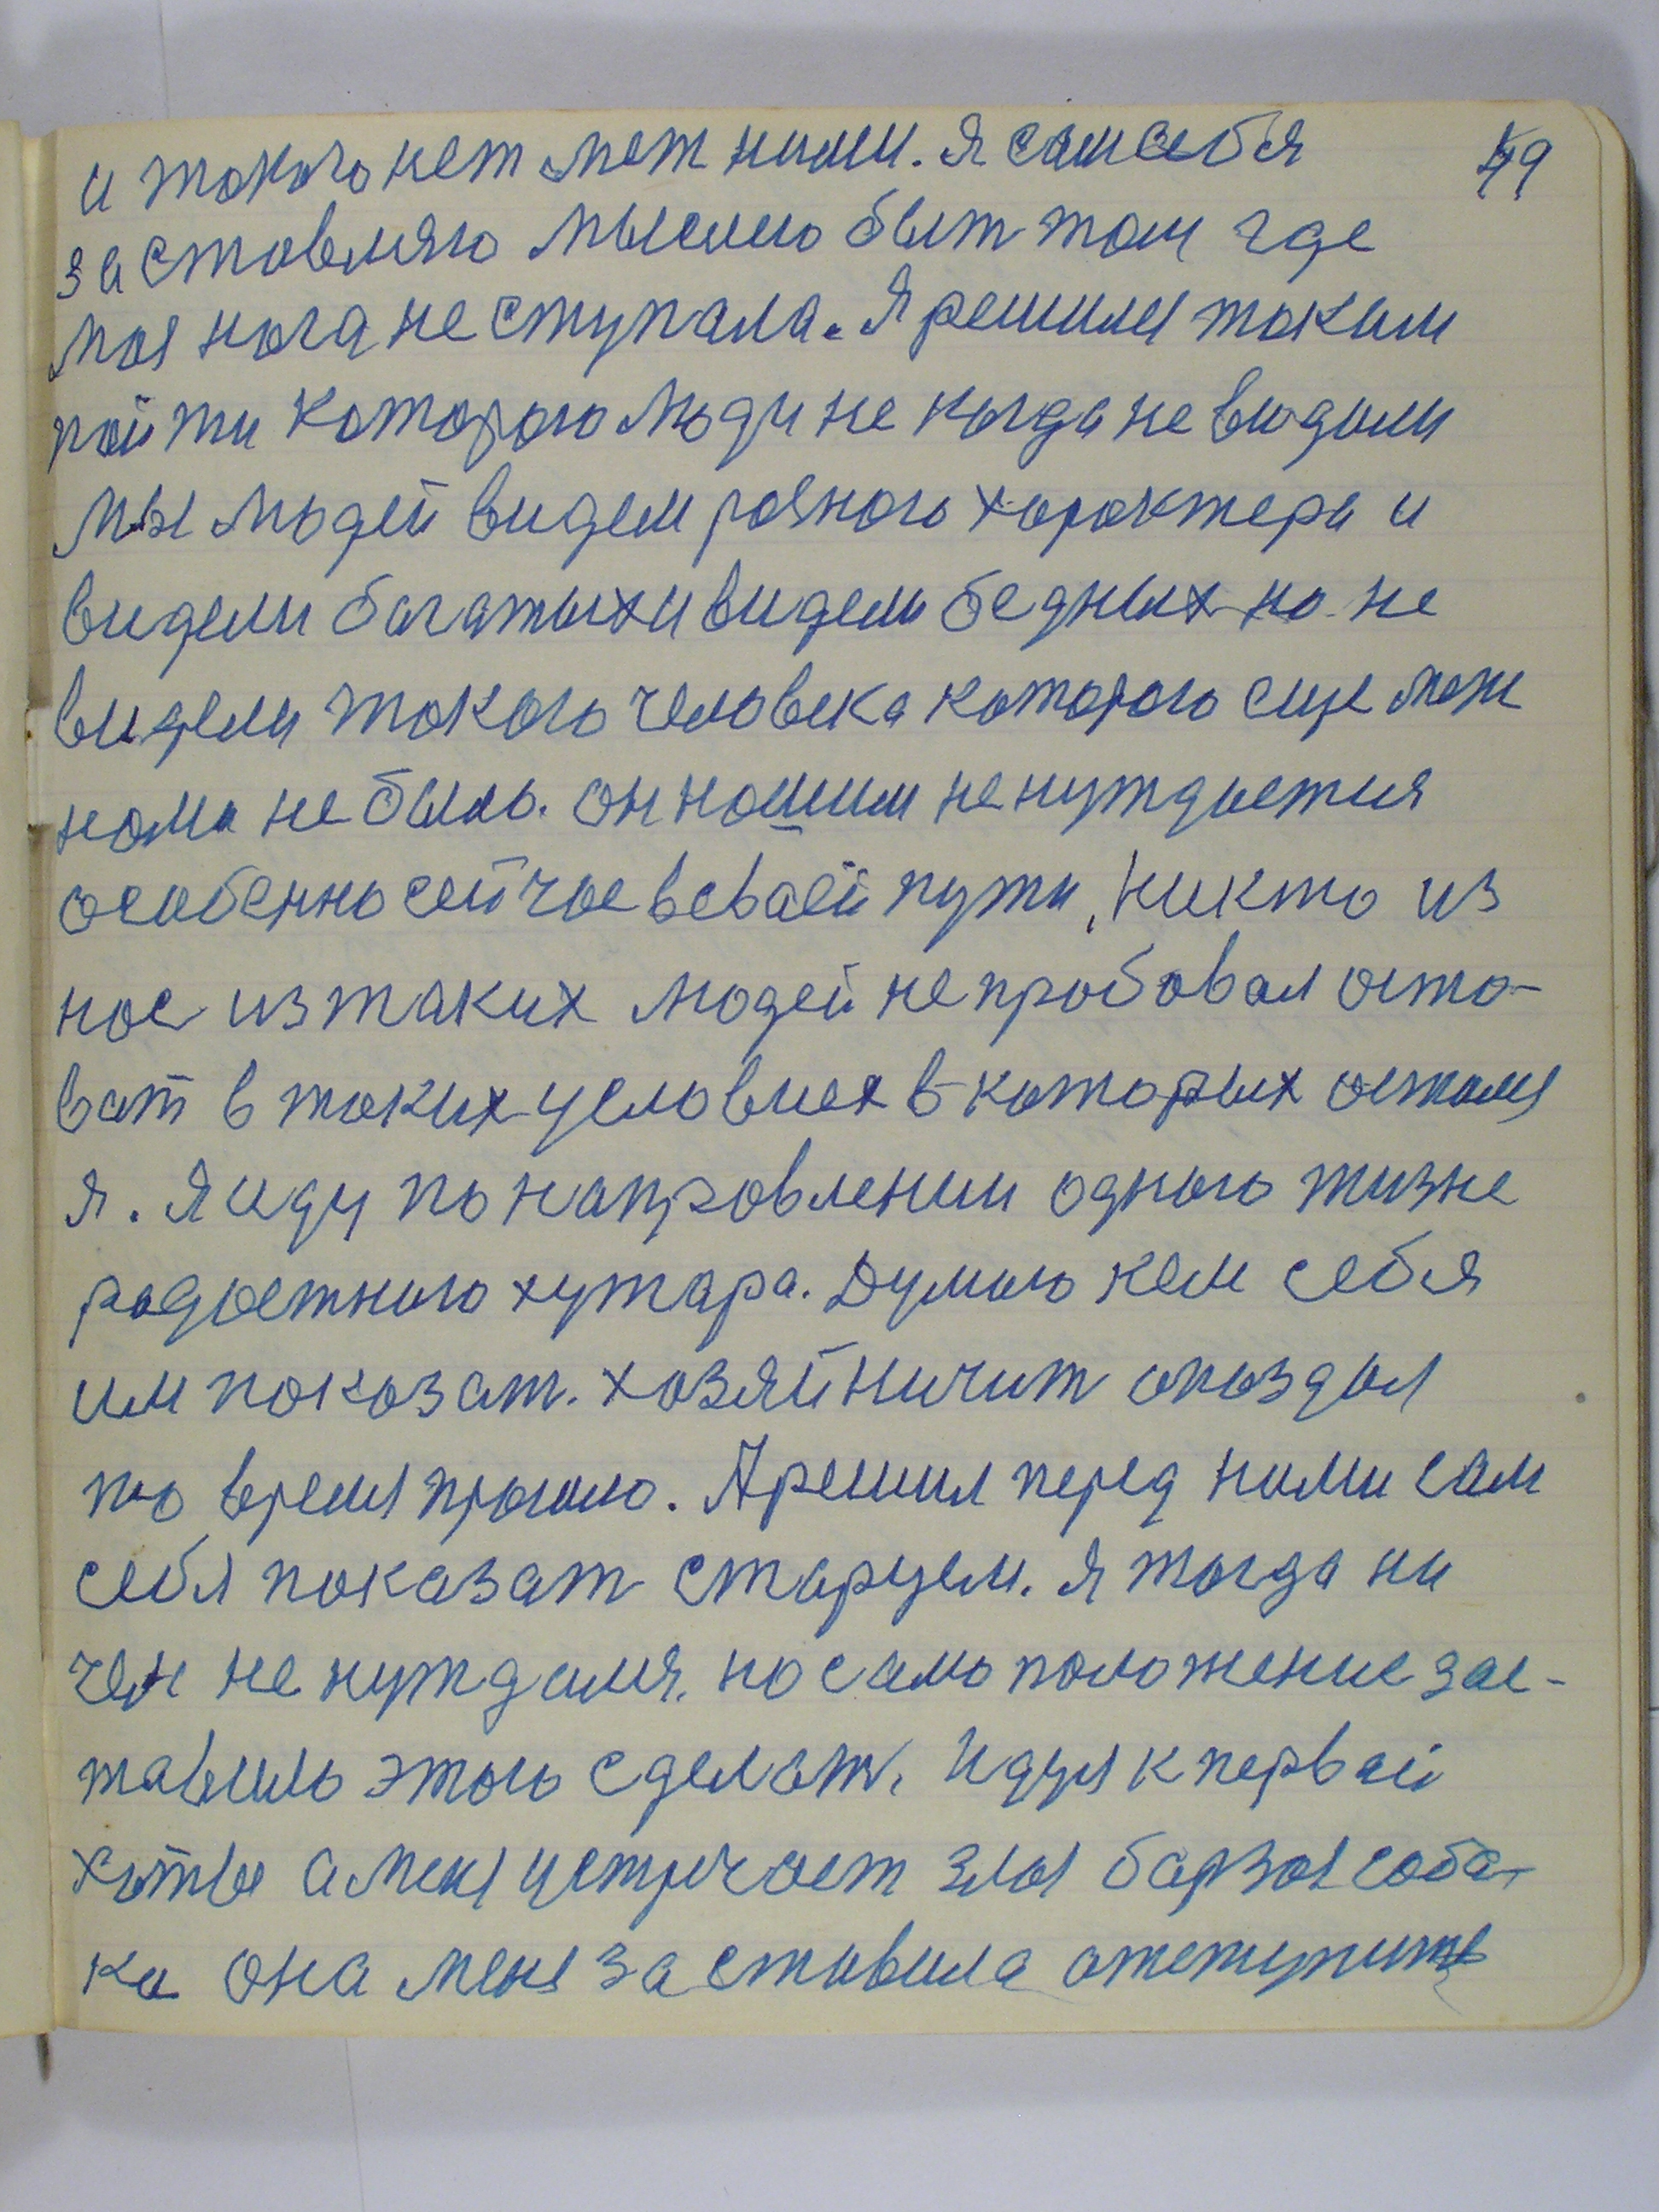 и такого нет меж ними. Я сам себя 49
заставляю мыслию быт там где
моя нога не ступала. Я решился таким
пойти которого люди не когда не видили
Мы людей видем разного характера и
видели богатых и видели бедных но не
видели такого человека которого еще меж
нами не было. он нашим не нуждается
особенно сейчас в сваей пути, никто из
нас из таких людей не пробовал оста-
ват в таких условиех в которых остался
я. Я иду по направлении одного жизне
радостного хутара. Думаю кем себя
им показат. хозяйничит опоздал
то время прошло. Я решил перед ними сам
себя показат старцем. я тогда ни
чем не нуждался. но само положение зас-
тавило этого сделат. Идуя к первай
хаты а меня устречает злая барзая соба-
ка она меня заставила отступить